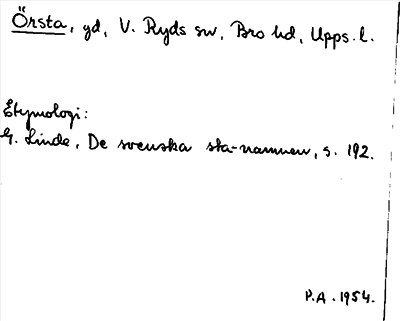 Örsta, gd, V. Ryds sn, Bro hd, Upps. l.
Etymologi:
G. Linde, De svenska sta-namnen, s. 192.
P.A. 1954.